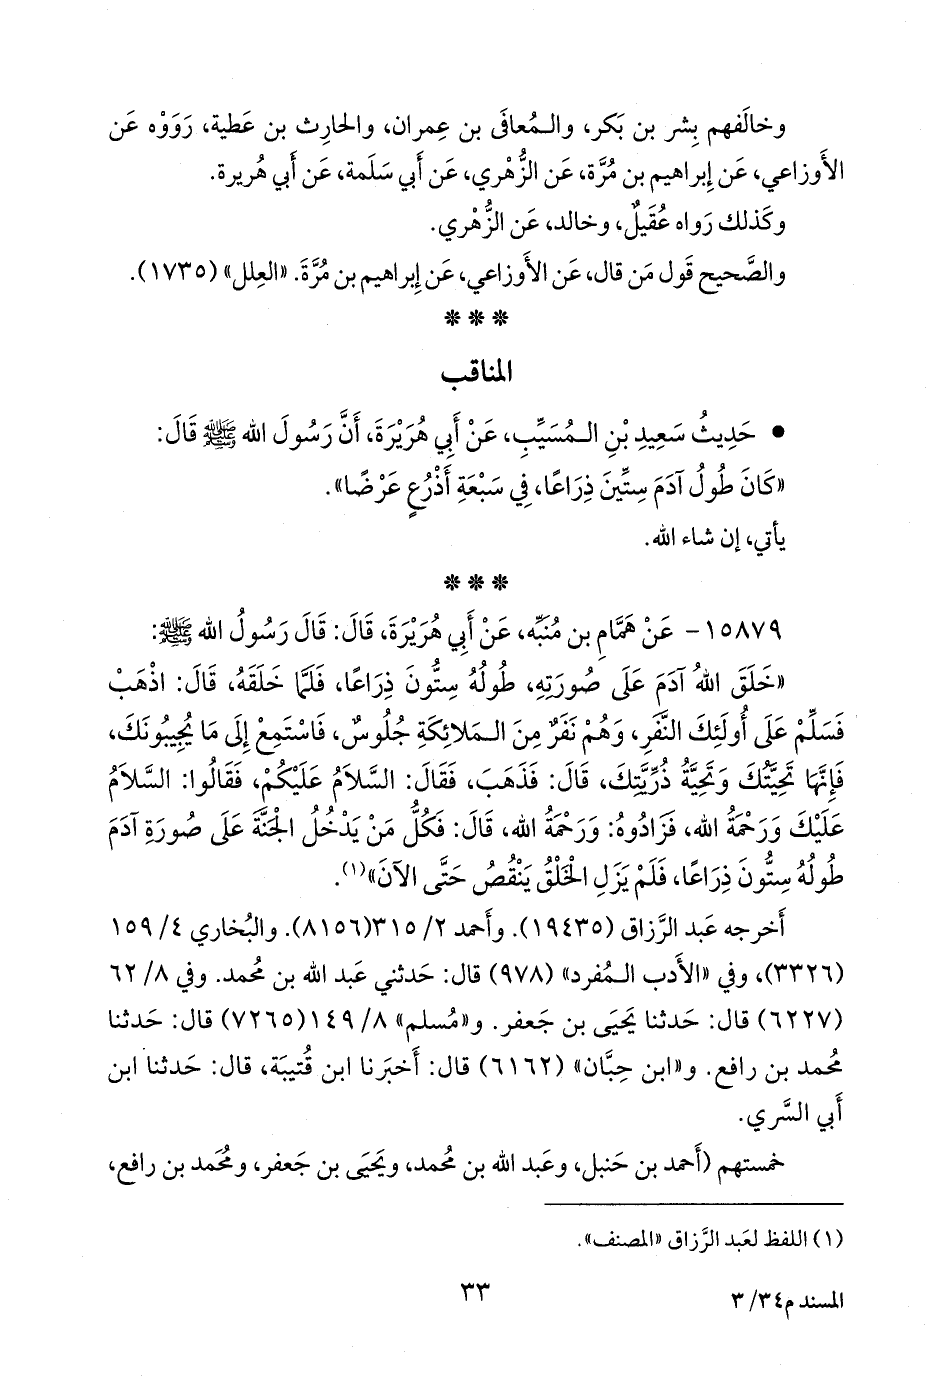 وخالَفهم بِشر بن بَكر، والـمُعافَى بن عِمران، والحارِث بن عَطية، رَوَوْه عَن
الأَوزاعي، عَن إِبراهيم بن مُرَّة، عَن الزُّهْري، عَن أَبي سَلَمة، عَن أَبي هُريرة.
وكَذلك رَواه عُقَيلٌ، وخالد، عَن الزُّهْري.
والصَّحيح قَول مَن قال، عَن الأَوزاعي، عَن إِبراهيم بن مُرَّةَ. «العِلل» (١٧٣٥).
* * *
المناقب
• حَدِيثُ سَعِيدِ بْنِ الـمُسَيِّبِ، عَنْ أَبِي هُرَيْرَةَ، أَنَّ رَسُولَ الله ﷺ قَالَ:
«كَانَ طُولُ آدَمَ سِتِّينَ ذِرَاعًا، فِي سَبْعَةِ أَذْرُعٍ عَرْضًا».
يأتي، إن شاء الله.
* * *
١٥٨٧٩- عَنْ هَمَّامِ بن مُنَبِّه، عَنْ أَبِي هُرَيْرَةَ، قَالَ: قَالَ رَسُولُ الله ﷺ:
«خَلَقَ اللهُ آدَمَ عَلَى صُورَتِهِ، طُولُهُ سِتُّونَ ذِرَاعًا، فَلَمَّا خَلَقَهُ، قَالَ: اذْهَبْ
فَسَلِّمْ عَلَى أُولَئِكَ النَّفَرِ، وَهُمْ نَفَرٌ مِنَ الـمَلائِكَةِ جُلُوسٌ، فَاسْتَمِعْ إِلَى مَا يُجِيبُونَكَ،
فَإِنَّهَا تَحِيَّتُكَ وَتَحِيَّةُ ذُرِّيَّتِكَ، قَالَ: فَذَهَبَ، فَقَالَ: السَّلاَمُ عَلَيْكُمْ، فَقَالُوا: السَّلاَمُ
عَلَيْكَ وَرَحْمَةُ الله، فَزَادُوهُ: وَرَحْمَةُ الله، قَالَ: فَكُلُّ مَنْ يَدْخُلُ الْجَنَّةَ عَلَى صُورَةِ آدَمَ
طُولُهُ سِتُّونَ ذِرَاعًا، فَلَمْ يَزَلِ الْخَلْقُ يَنْقُصُ حَتَّى الآنَ»(١).
أَخرجه عَبد الرَّزاق (١٩٤٣٥). وأَحمد ٢/ ٣١٥(٨١٥٦). والبُخاري ٤/ ١٥٩
(٣٣٢٦)، وفي «الأَدب الـمُفرد» (٩٧٨) قال: حَدثني عَبد الله بن مُحمد. وفي ٨/ ٦٢
(٦٢٢٧) قال: حَدثنا يَحيَى بن جَعفر. و«مُسلم» ٨/ ١٤٩(٧٢٦٥) قال: حَدثنا
مُحمد بن رافع. و«ابن حِبَّان» (٦١٦٢) قال: أَخبَرنا ابن قُتيبَة، قال: حَدثنا ابن
أَبي السَّري.
خمستهم (أَحمد بن حَنبل، وعَبد الله بن مُحمد، ويَحيَى بن جَعفر، ومُحمد بن رافع،
(١) اللفظ لعَبد الرَّزاق «المصنف».
المسند م٣٤/ ٣
٣٣